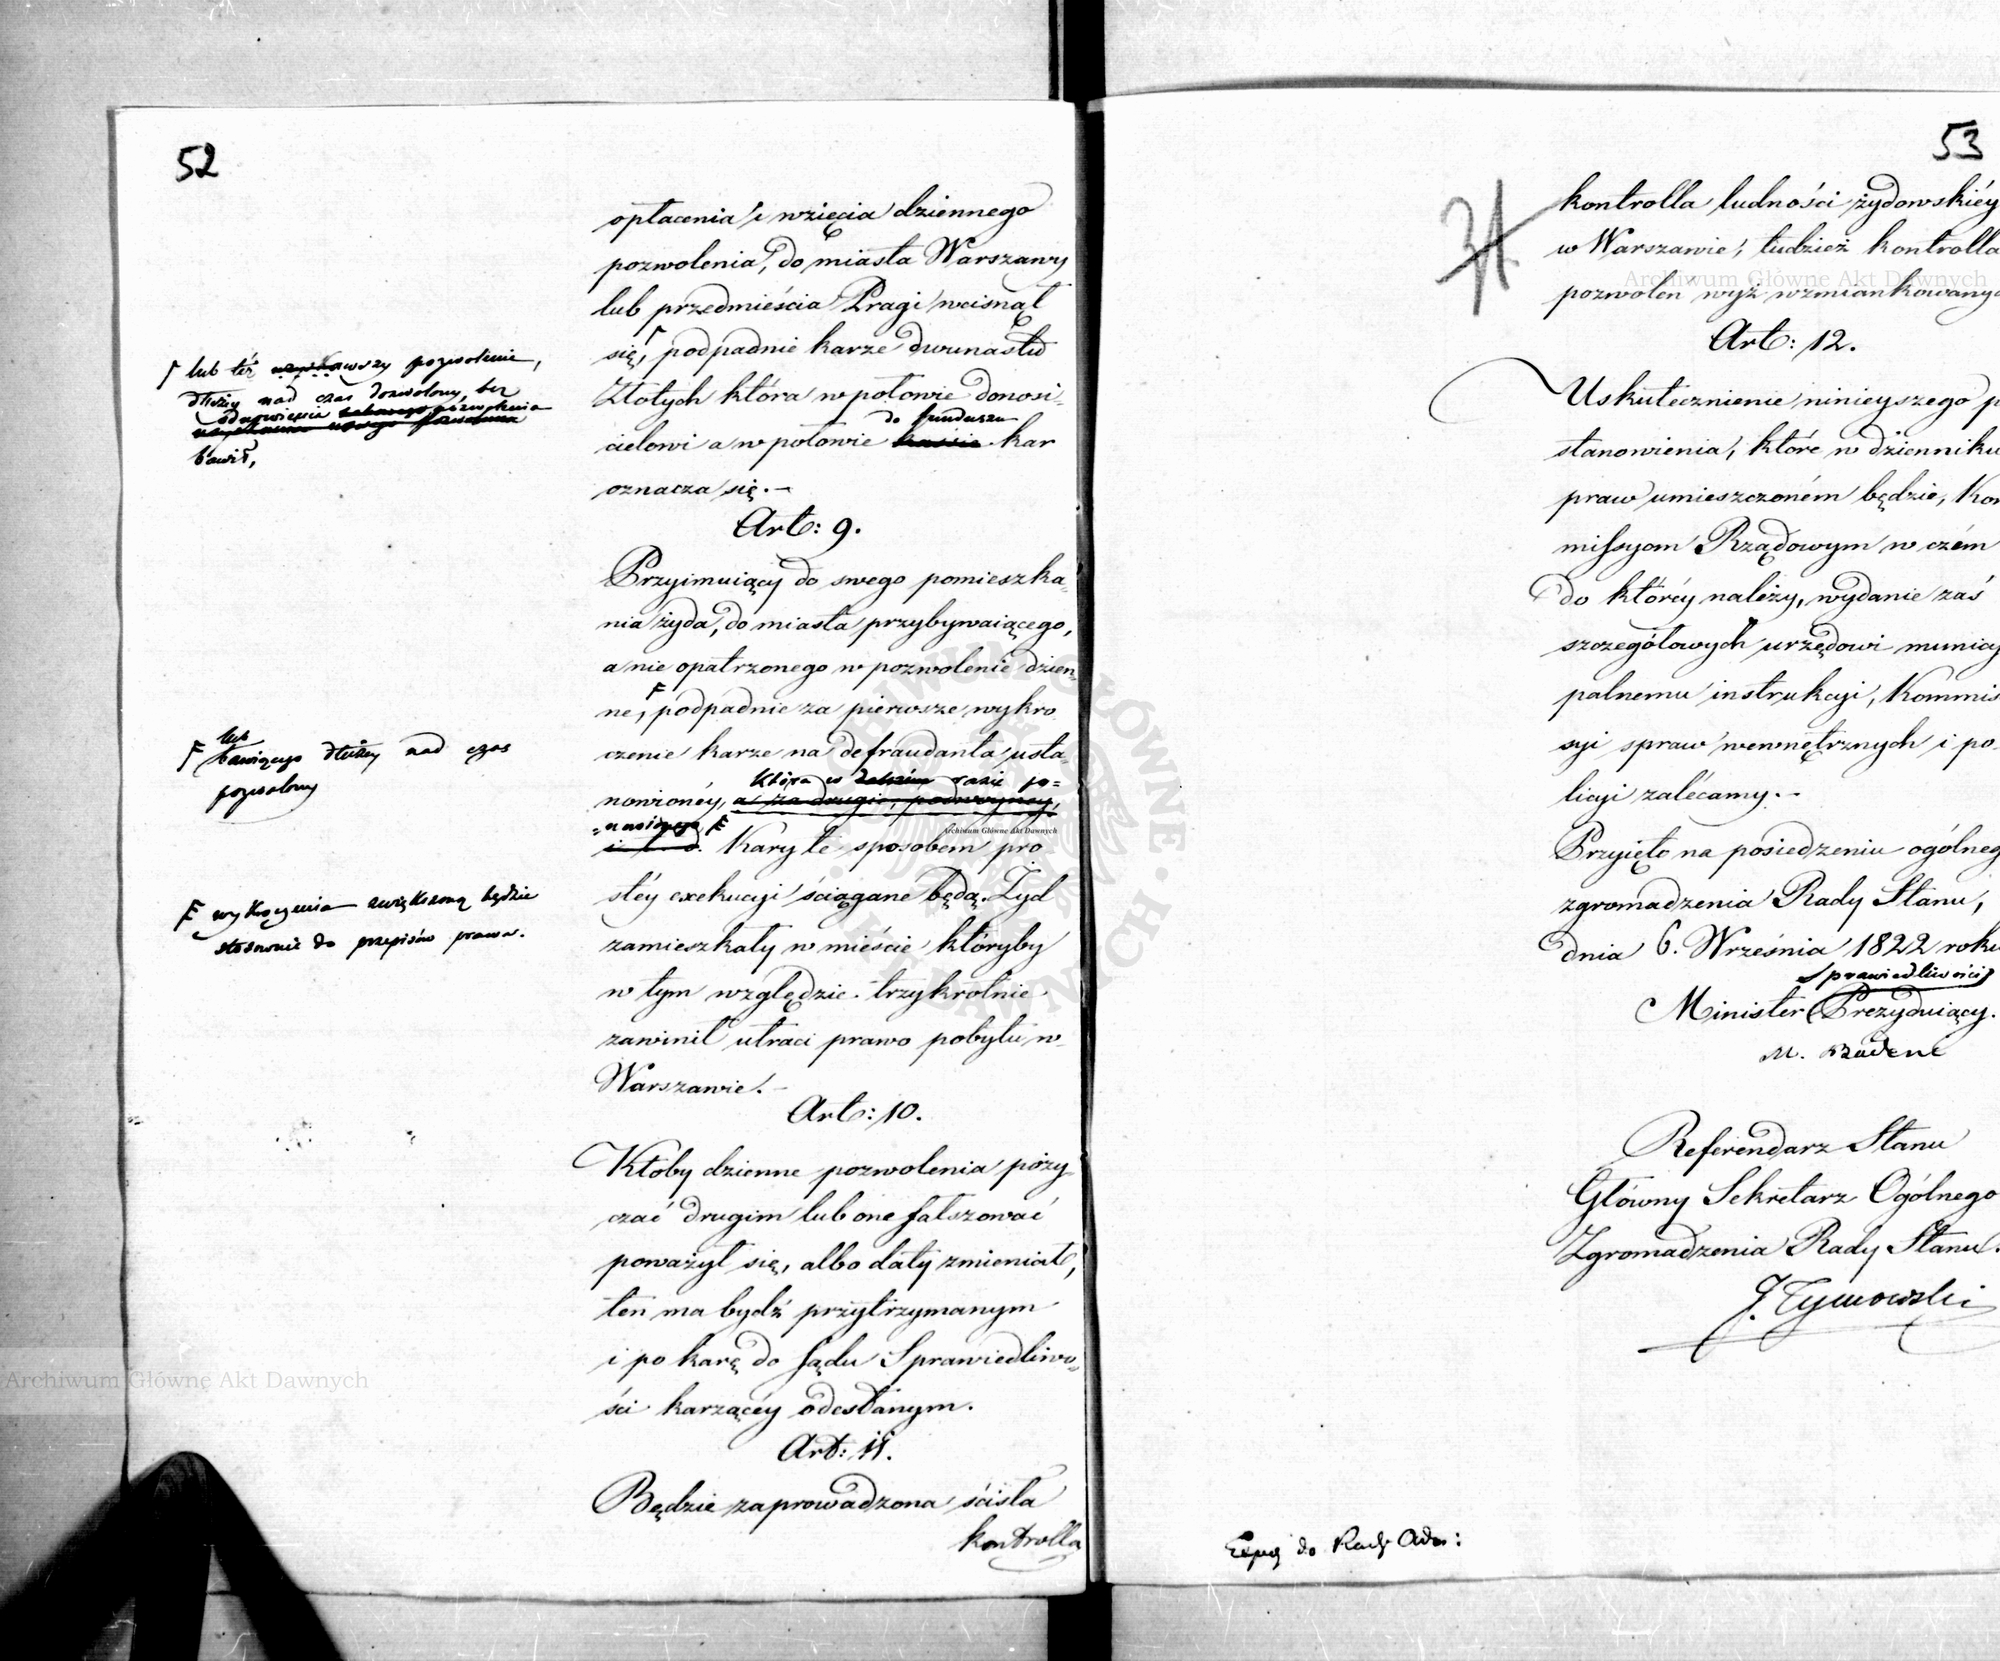 52
opłacenia i wzięcia dziennego
pozwolenia, do miasta Warszawy
lub przedmieścia Pragi wcisnął
się, podpadnie karze dwunastu
Złotych która w połowie donosi-
cielowi a w połowie do funduszu kassie kar
oznacza się.-
Art: 9.
Przyimuiący do swego pomieszka-
nia żyda, do miasta przybywaiącego,
a nie opatrzonego w pozwolenie dzien-
ne, podpadnie za pierwsze wykro
czenie karze na defraudanta usta-
która w razie po-
nowionéy, a za drugie, podwoyney,
-nowionego
i t. d. Kary te sposobem pro
stéy exekucyi ściągane będą. Żyd
zamieszkały w mieście któryby
w tym względzie trzykrotnie
zawinił utraci prawo pobytu w
Warszawie.-
Art: 10.
Ktoby dzienne pozwolenia poży
czać drugim lub one fałszować
poważył się, albo daty zmieniał,
ten ma bydź przytrzymanym
i po karę do Sądu Sprawiedliwo-
ści karzącéy odesłanym.
Art: 11.
Będzie zaprowadzona ścisła
kontrolla
lub też pozwolenie,
dłużey nad czas dozwolony, bez
bawił,
lub
bawiącego dłużey nad czas
pozwolony
wykroczenia zwiększoną będzie
stosownie do przepisów prawa.
53
kontrolla ludności żydowskiéy
w Warszawie, tudzież kontrolla
pozwoleń wyż wzmiankowanych
Art: 12.
Uskutecznienie ninieyszego p
stanowienia, które w dzienniku
praw umieszczoném będzie, Kom
missyom Rządowym w czém
do któréy należy, wydanie zaś
szczegółowych urzędowi municy
palnemu instrukcyi, Kommis
syi spraw wewnętrznych i po-
licyi zalécamy.-
Przyięto na posiedzeniu ogólneg
zgromadzenia Rady Stanu,
dnia 6. Września 1822 roku
Sprawiedliwości
Minister Prezyduiący.
M. Badeni
Referendarz Stanu
Główny Sekretarz Ogólnego
Zgromadzenia Rady Stanu.
J. Tymowski
do Rady Adm:
Archiwum Główne Akt Dawnych
Archiwum Główne Akt Dawnych
Archiwum Główne Akt Dawnych